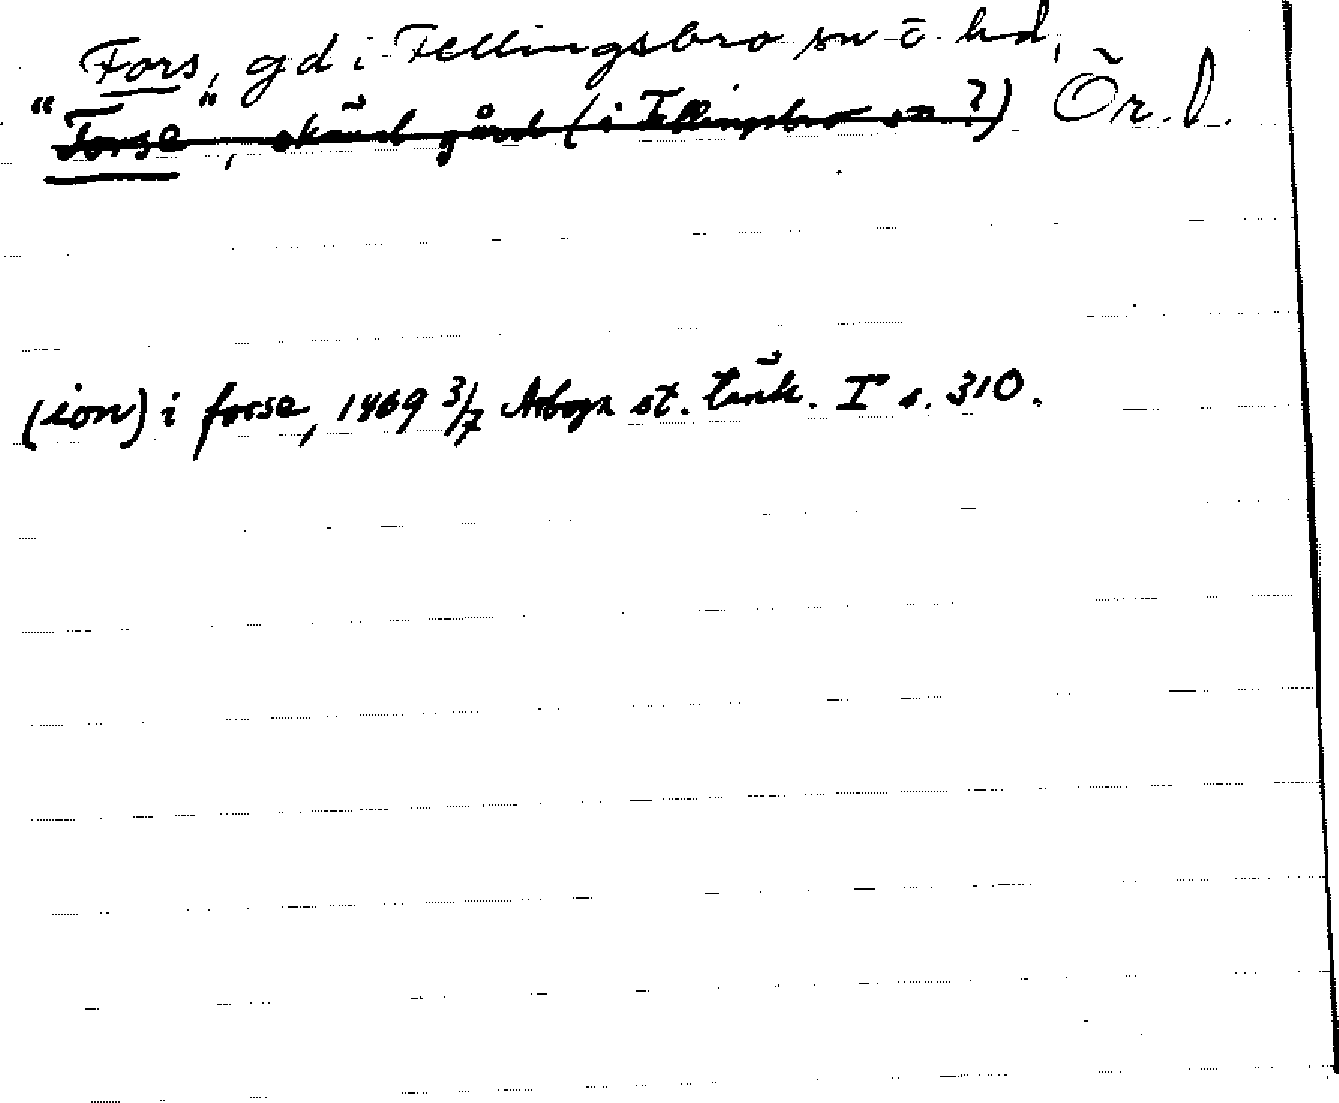 Fors, gd i Fellingsbro sn o hd, Ör. l.
"Forse", okänd gård (i Fellingsbro sn?)
(ion) i forse, 1469 3/7 Arboga st. tänk. I s. 310.